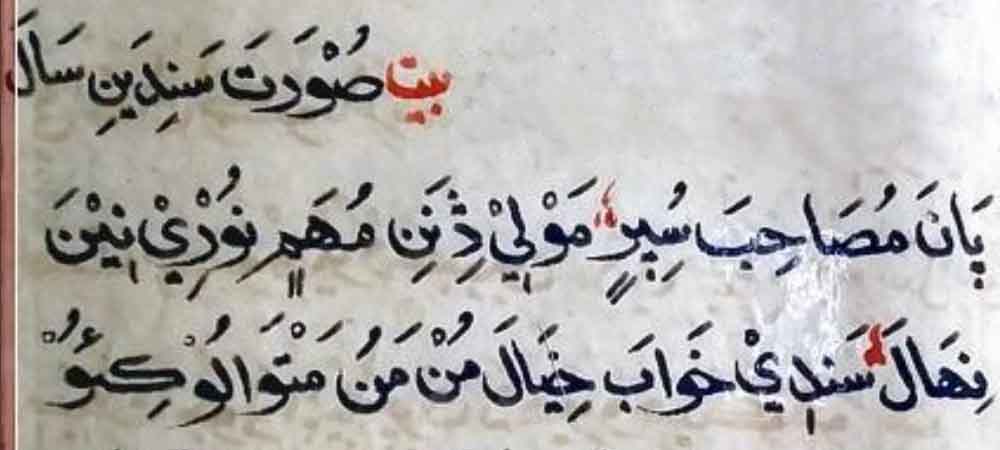 بيت صُوْرَتَ سَنِدِينِ سَالَ
پَانَ مُصَاحِبَ سُپِرٍ مَوْلِيْ ذِنَنِ مُهَمٍ نُوْرِيْ نِيْنَ
نِهَالَ سَندِيْ خَوَابَ خِيَالَ مُنْ مَنُ مَتْوَالُوْ كِئَوُ